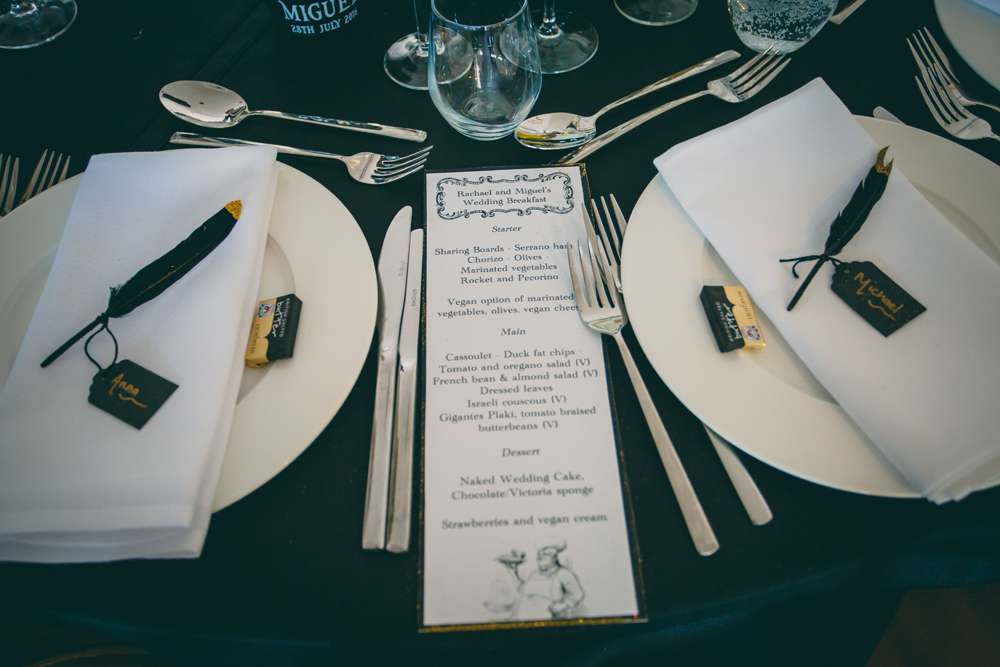 MIGUEL
28TH JULY
Rachael and Miguel's
Wedding Breakfast
Starter
Sharing Boards - Serrano ham
Chorizo - Olives -
Marinated vegetables
Rocket and Pecorino
Vegan option of marinated
vegetables, olives, vegan chee
Main
Cassoulet - Duck fat chips -
Tomato and oregano salad (V)
French bean & almond salad (V)
Dressed leaves
Israeli couscous (V)
Gigantes Plaki, tomato braised
butterbeans (V)
Dessert
Naked Wedding Cake,
Chocolate/Victoria sponge
Strawberries and vegan cream
Anna
butter
Michael
butter